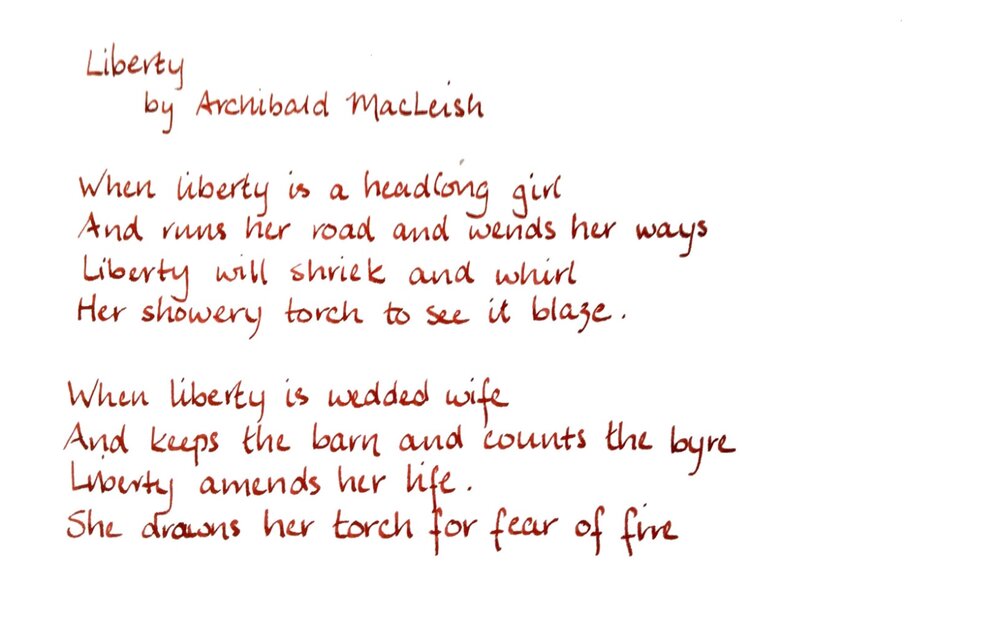 Liberty
by Archibald MacLeish
When liberty is a headlong girl
And runs her road and wends her ways
Liberty will shriek and whirl
Her showery torch to see it blaze.
When liberty is wedded wife
And keeps the barn and counts the byre
Liberty amends her life.
She drowns her torch for fear of fire